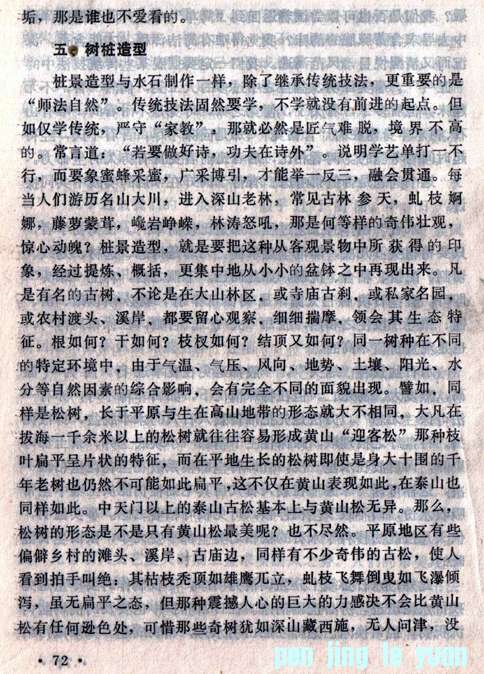 垢，那是谁也不爱看的。
五、树桩造型
桩景造型与水石制作一样，除了继承传统技法，更重要的是
“师法自然”。传统技法固然要学，不学就没有前进的起点。但
如仅学传统，严守“家教”，那就必然是匠气难脱，境界不高
的。常言道：“若要做好诗，功夫在诗外”。说明学艺单打一不
行，而要象蜜蜂采蜜，广采博引，才能举一反三，融会贯通。每
当人们游历名山大川，进入深山老林，常见古林参天，虬枝婀
娜，藤萝蒙茸，巉岩峥嵘，林涛怒吼，那是何等样的奇伟壮观，
惊心动魄？桩景造型，就是要把这种从客观景物中所获得的印
象，经过提炼、概括，更集中地从小小的盆钵之中再现出来。凡
是有名的古树，不论是在大山林区，或寺庙古刹，或私家名园，
或农村渡头、溪岸，都要留心观察，细细揣摩，领会其生态特
征。根如何？干如何？枝杈如何？结顶又如何？同一树种在不同
的特定环境中，由于气温、气压、风向、地势、土壤、阳光、水
分等自然因素的综合影响，会有完全不同的面貌出现。譬如，同
样是松树，长于平原与生在高山地带的形态就大不相同，大凡在
拔海一千余米以上的松树就往往容易形成黄山“迎客松”那种枝
叶扁平呈片状的特征，而在平地生长的松树即使是身大十围的千
年老树也仍然不可能如此扁平，这不仅在黄山表现如此，在泰山也
同样如此。中天门以上的泰山古松基本上与黄山松无异。那么，
松树的形态是不是只有黄山松最美呢？也不尽然。平原地区有些
偏僻乡村的滩头、溪岸、古庙边，同样有不少奇伟的古松，使人
看到拍手叫绝：其枯枝秃顶如雄鹰兀立，虬枝飞舞倒曳如飞瀑倾
泻，虽无扁平之态，但那种震撼人心的巨大的力感决不会比黄山
松有任何逊色处，可惜那些奇树犹如深山藏西施，无人问津，没
· 72 ·
pen jing le yuan